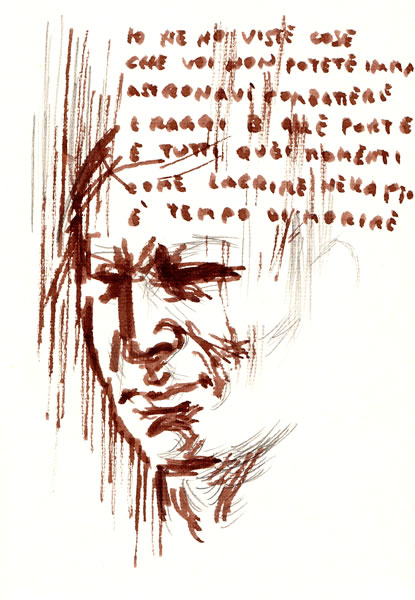 IO NE HO VISTE COSE
CHE VOI NON POTETE IMMA
ASTRONAVI COMBATTERE
E RAGGI B QUE PORTE
E TUTTI QUEI MOMENTI
COME LACRIME NELLA PIO
È TEMPO DI MORIRE